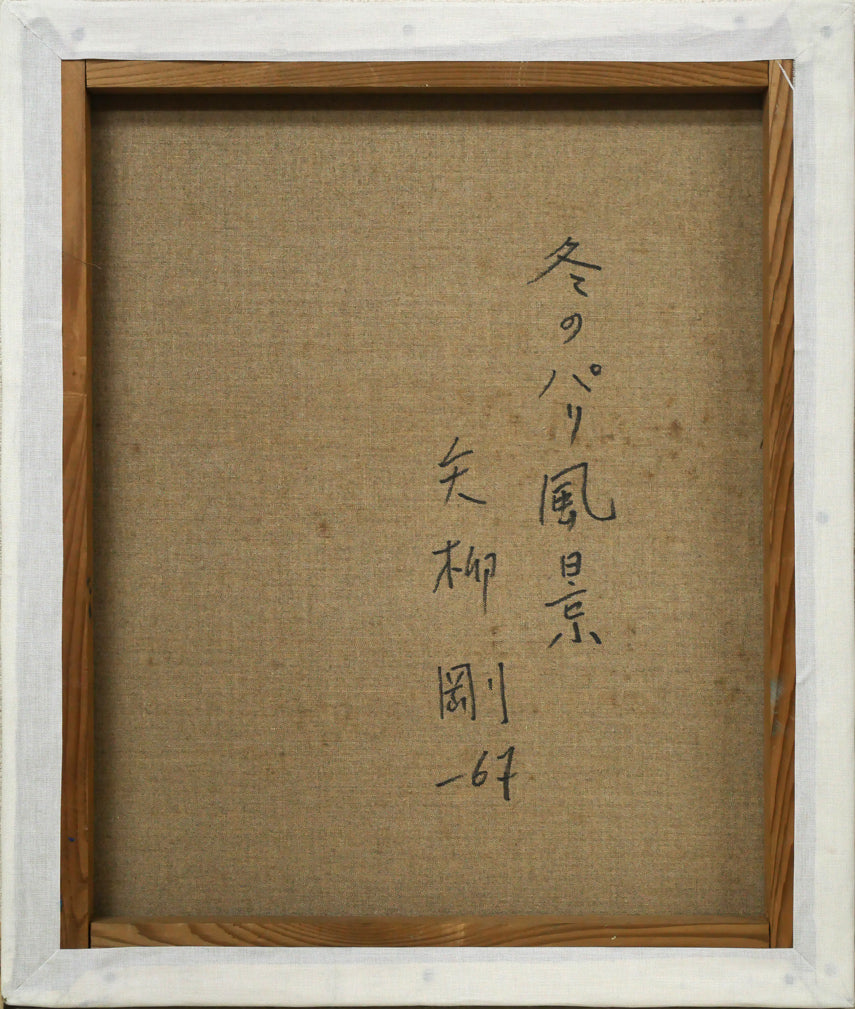 冬のパリ風景
矢柳剛
-67